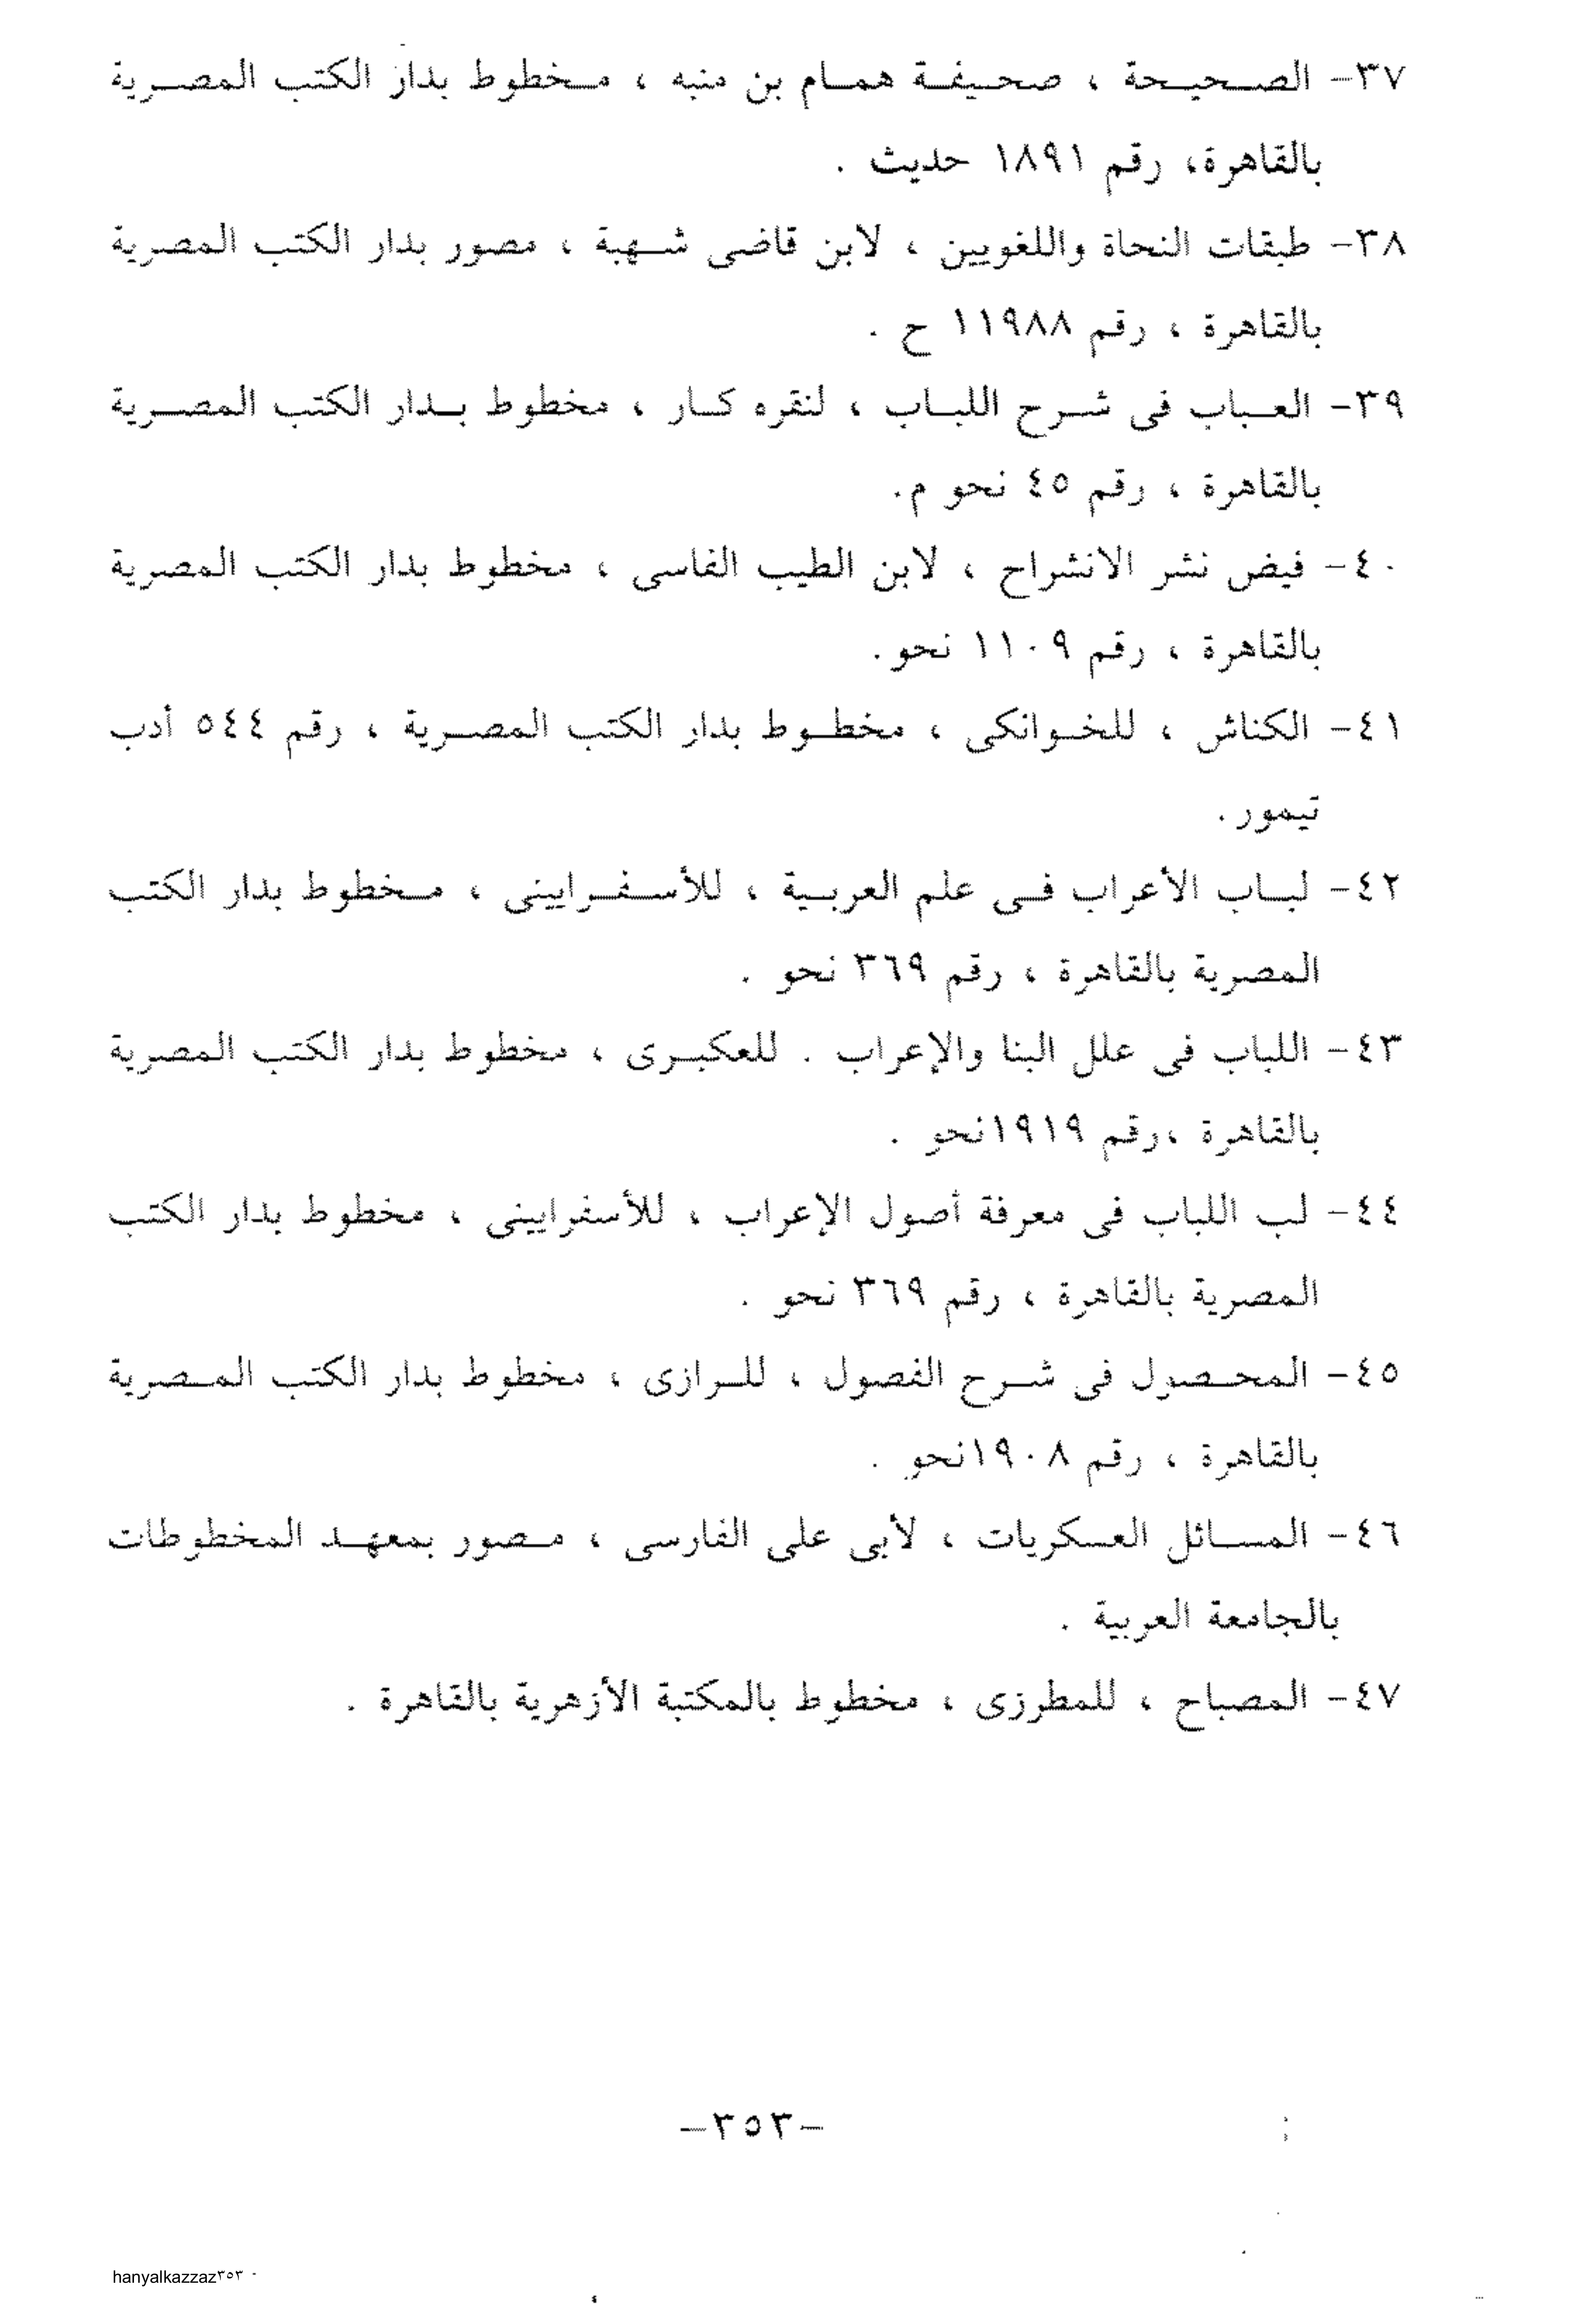 ٣٧- الصحيحة ، صحيفة همام بن منبه ، مخطوط بدار الكتب المصرية
بالقاهرة، رقم ١٨٩١ حديث .
٣٨- طبقات النحاة واللغويين ، لابن قاضى شهبة ، مصور بدار الكتب المصرية
بالقاهرة ، رقم ١١٩٨٨ ح .
٣٩- العباب فى شرح اللباب ، لنقره كار ، مخطوط بدار الكتب المصرية
بالقاهرة ، رقم ٤٥ نحو م.
٤٠- فيض نشر الانشراح ، لابن الطيب الفاسى ، مخطوط بدار الكتب المصرية
بالقاهرة ، رقم ١١٠٩ نحو.
٤١- الكناش ، للخوانكى ، مخطوط بدار الكتب المصرية ، رقم ٥٤٤ أدب
تيمور.
٤٢- لباب الأعراب فى علم العربية ، للأسفرايينى ، مخطوط بدار الكتب
المصرية بالقاهرة ، رقم ٣٦٩ نحو .
٤٣- اللباب فى علل البنا والإعراب . للعكبرى ، مخطوط بدار الكتب المصرية
بالقاهرة ،رقم ١٩١٩نحو .
٤٤- لب اللباب فى معرفة أصول الإعراب ، للأسفرايينى ، مخطوط بدار الكتب
المصرية بالقاهرة ، رقم ٣٦٩ نحو .
٤٥- المحصول فى شرح الفصول ، للرازى ، مخطوط بدار الكتب المصرية
بالقاهرة ، رقم ١٩٠٨نحو .
٤٦- المسائل العسكريات ، لأبى على الفارسى ، مصور بمعهد المخطوطات
بالجامعة العربية .
٤٧- المصباح ، للمطرزى ، مخطوط بالمكتبة الأزهرية بالقاهرة .
-٣٥٣-
hanyalkazzaz٣٥٣